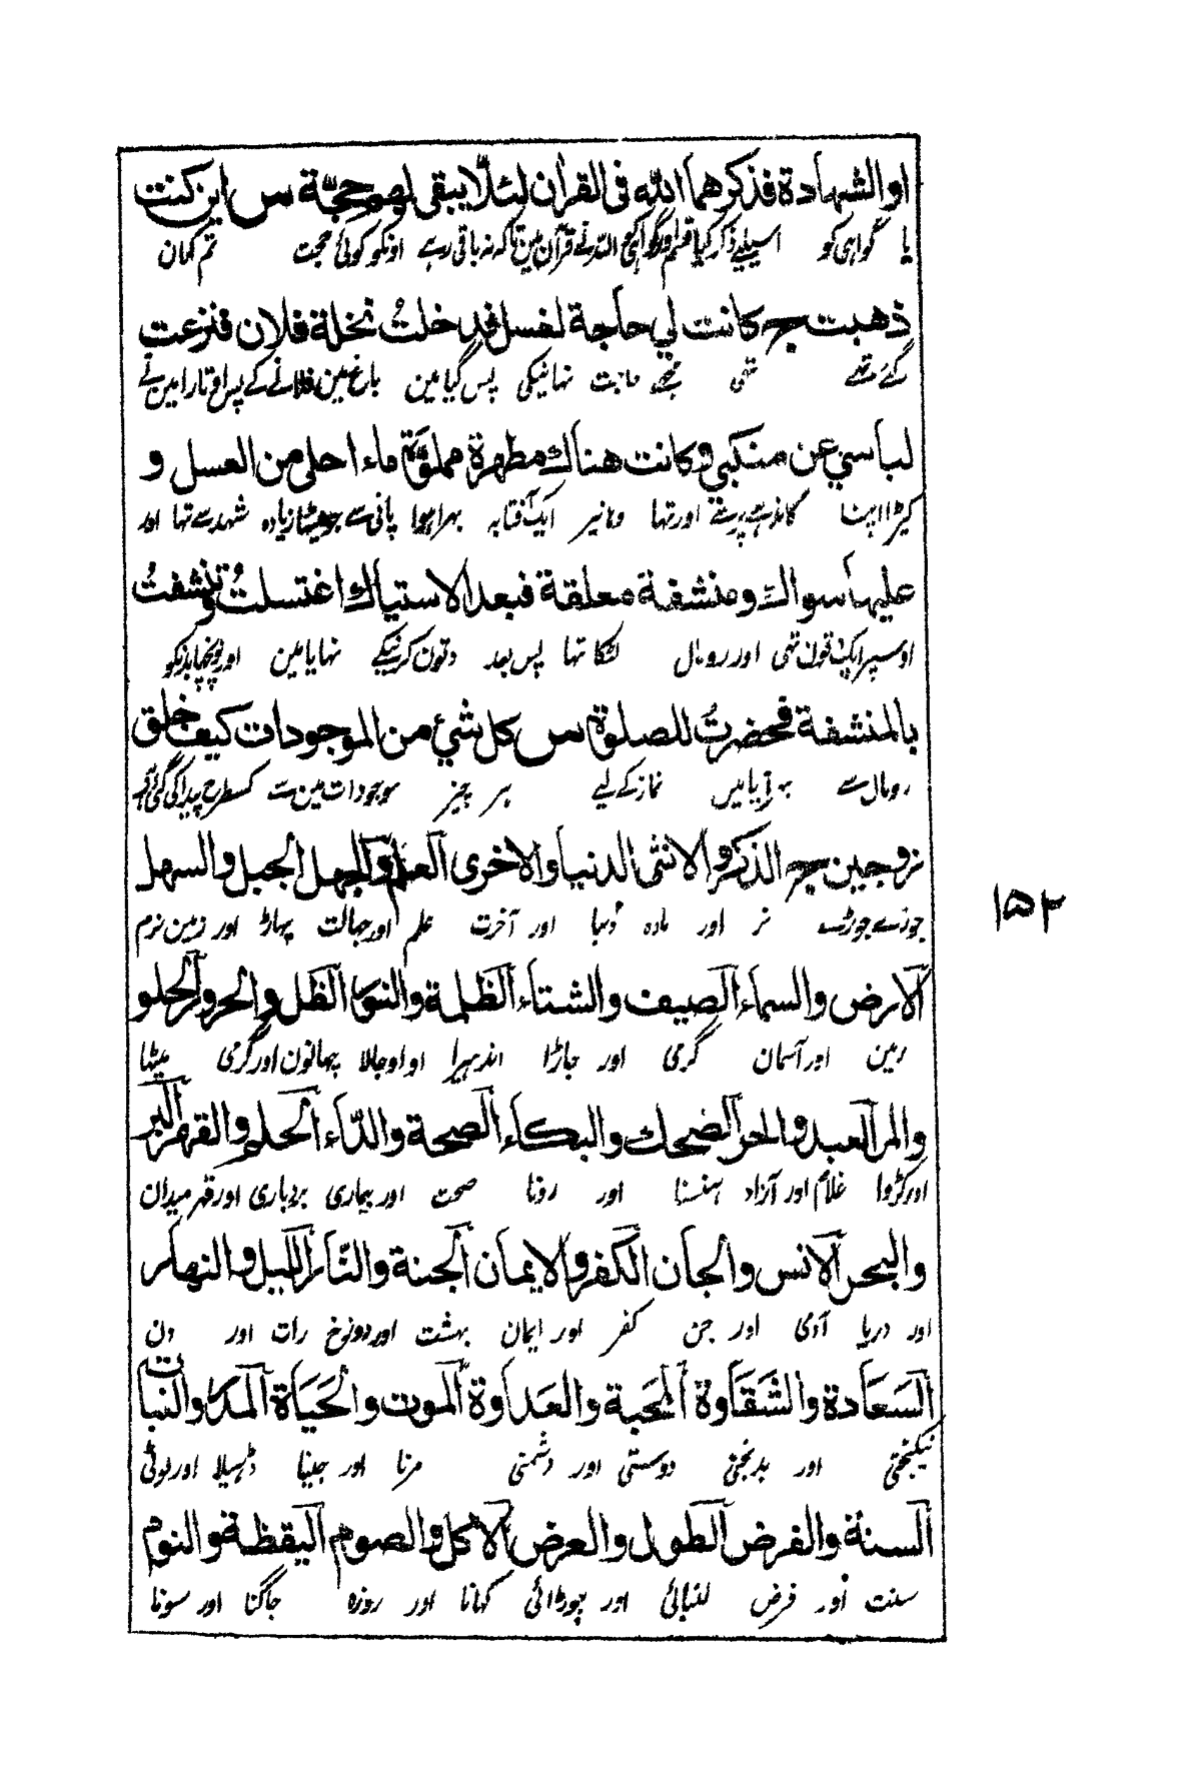 او الشهادة فذكرهما الله فى القران لئلا يبقى لهو حجّة س اين كنت
يا گواہی کو اسیلیے ذکر کیا قسم اور گواہی کو اللہ نے قرآن مین تاکہ نہ باقی رہے اونکو کوئی حجت تم کہان
ذهبت ج كانت لي حاجة لغسل فدخلتُ نخلة فلان فنزعت
گئے تھے تہی مجھے حاجت نہانیکی پس گیا مین باغ مین فلانے کے پس اوتارا مین نے
لباسي عن منكبي وكانت هناك مطهرة مملوّة ماء احلى من العسل و
کپڑا اپنا کاندہے پر سے اور تہا وہانپر ایک آفتابہ بہرا ہوا پانی سے جو میٹھا زیادہ شہد سے تہا اور
عليها سواك ومنشفة معلقة فبعد الاستياك اغتسلتُ وتنشفتُ
اوسپر ایک دتون تہی اور رومال لٹکا تہا پس بعد دتون کرنیکے نہایا مین اور پونچہا بدنکو
بالمنشفة فحضرتُ للصلوة س كل شئ من الموجودات كيف خلق
رومال سے پہر آیا مین نماز کے لیے ہر چیز موجودات مین سے کسطرح پیدا کی گئی ہے
زوجين ج الذكر والانثى الدنيا والاخرى العلم والجهل الجبل والسهل
جوڑے جوڑے نر اور مادہ دنیا اور آخرت علم اور جہالت پہاڑ اور زمین نرم
الارض والسماء الصيف والشتاء الظلمة والنور الظل والحرور الحلو
زمین اور آسمان گرمی اور جاڑا اندہیرا او اوجالا چہانون اور گرمی میٹہا
والمر العبد والحر الضحك والبكاء الصحة والدّاء الحلم والقهر البر
اور کڑوا غلام اور آزاد ہنسنا اور رونا صحت اور بیماری بردباری اور قہر میدان
والبحر الانس والجان الكفر والايمان الجنة والنّار الليل والنهار
اور دریا آدمی اور جن کفر اور ایمان بہشت اور دوزخ رات اور دن
السَعَادة والشَقَاوة المحبة والعَداوة الموت والحَيَاة المدر والنبات
نیکبختی اور بدبختی دوستی اور دشمنی مرنا اور جینا ڈہیلا اور بوٹی
السنة والفرض الطول والعرض الاكل والصوم اليقظة والنوم
سنت اور فرض لنبائی اور چوڑائی کہانا اور روزہ جاگنا اور سونا
۱۵۲